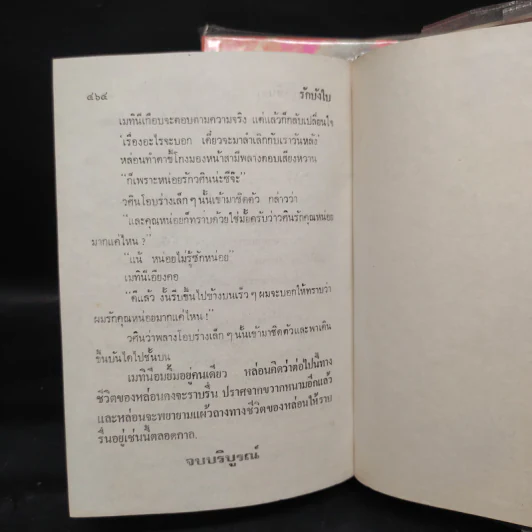 ๔๖๕ รักบังใบ
เมทินีเกือบจะตอบตามความจริง แต่แล้วก็กลับเปลี่ยนใจ
'เรื่องอะไรจะบอก เดี๋ยวจะมาลำเลิกกับเราวันหลัง'
หล่อนทำตาขี้โกงมองหน้าสามีพลางตอบเสียงหวาน
"ก็เพราะหน่อยรักวศินน่ะซีจ๊ะ"
วศินโอบร่างเล็ก ๆ นั้นเข้ามาชิดตัว กล่าวว่า
"และคุณหน่อยก็ทราบด้วยใช่มั้ยครับว่าวศินรักคุณหน่อย
มากแค่ไหน ?"
"แน้ หน่อยไม่รู้ซักหน่อย"
เมทินีเอียงคอ
"ดีแล้ว งั้นรีบขึ้นไปข้างบนเร็ว ๆ ผมจะบอกให้ทราบว่า
ผมรักคุณหน่อยมากแค่ไหน !"
วศินว่าพลางโอบร่างเล็ก ๆ นั้นเข้ามาชิดตัวและพาเดิน
ขึ้นบันไดไปชั้นบน
เมทินีอมยิ้มอยู่คนเดียว หล่อนคิดว่าต่อไปนี้ทาง
ชีวิตของหล่อนคงจะราบรื่น ปราศจากขวากหนามอีกแล้ว
และหล่อนจะพยายามแผ้วถางทางชีวิตของหล่อนให้ราบ
รื่นอยู่เช่นนี้ตลอดกาล.
จบบริบูรณ์